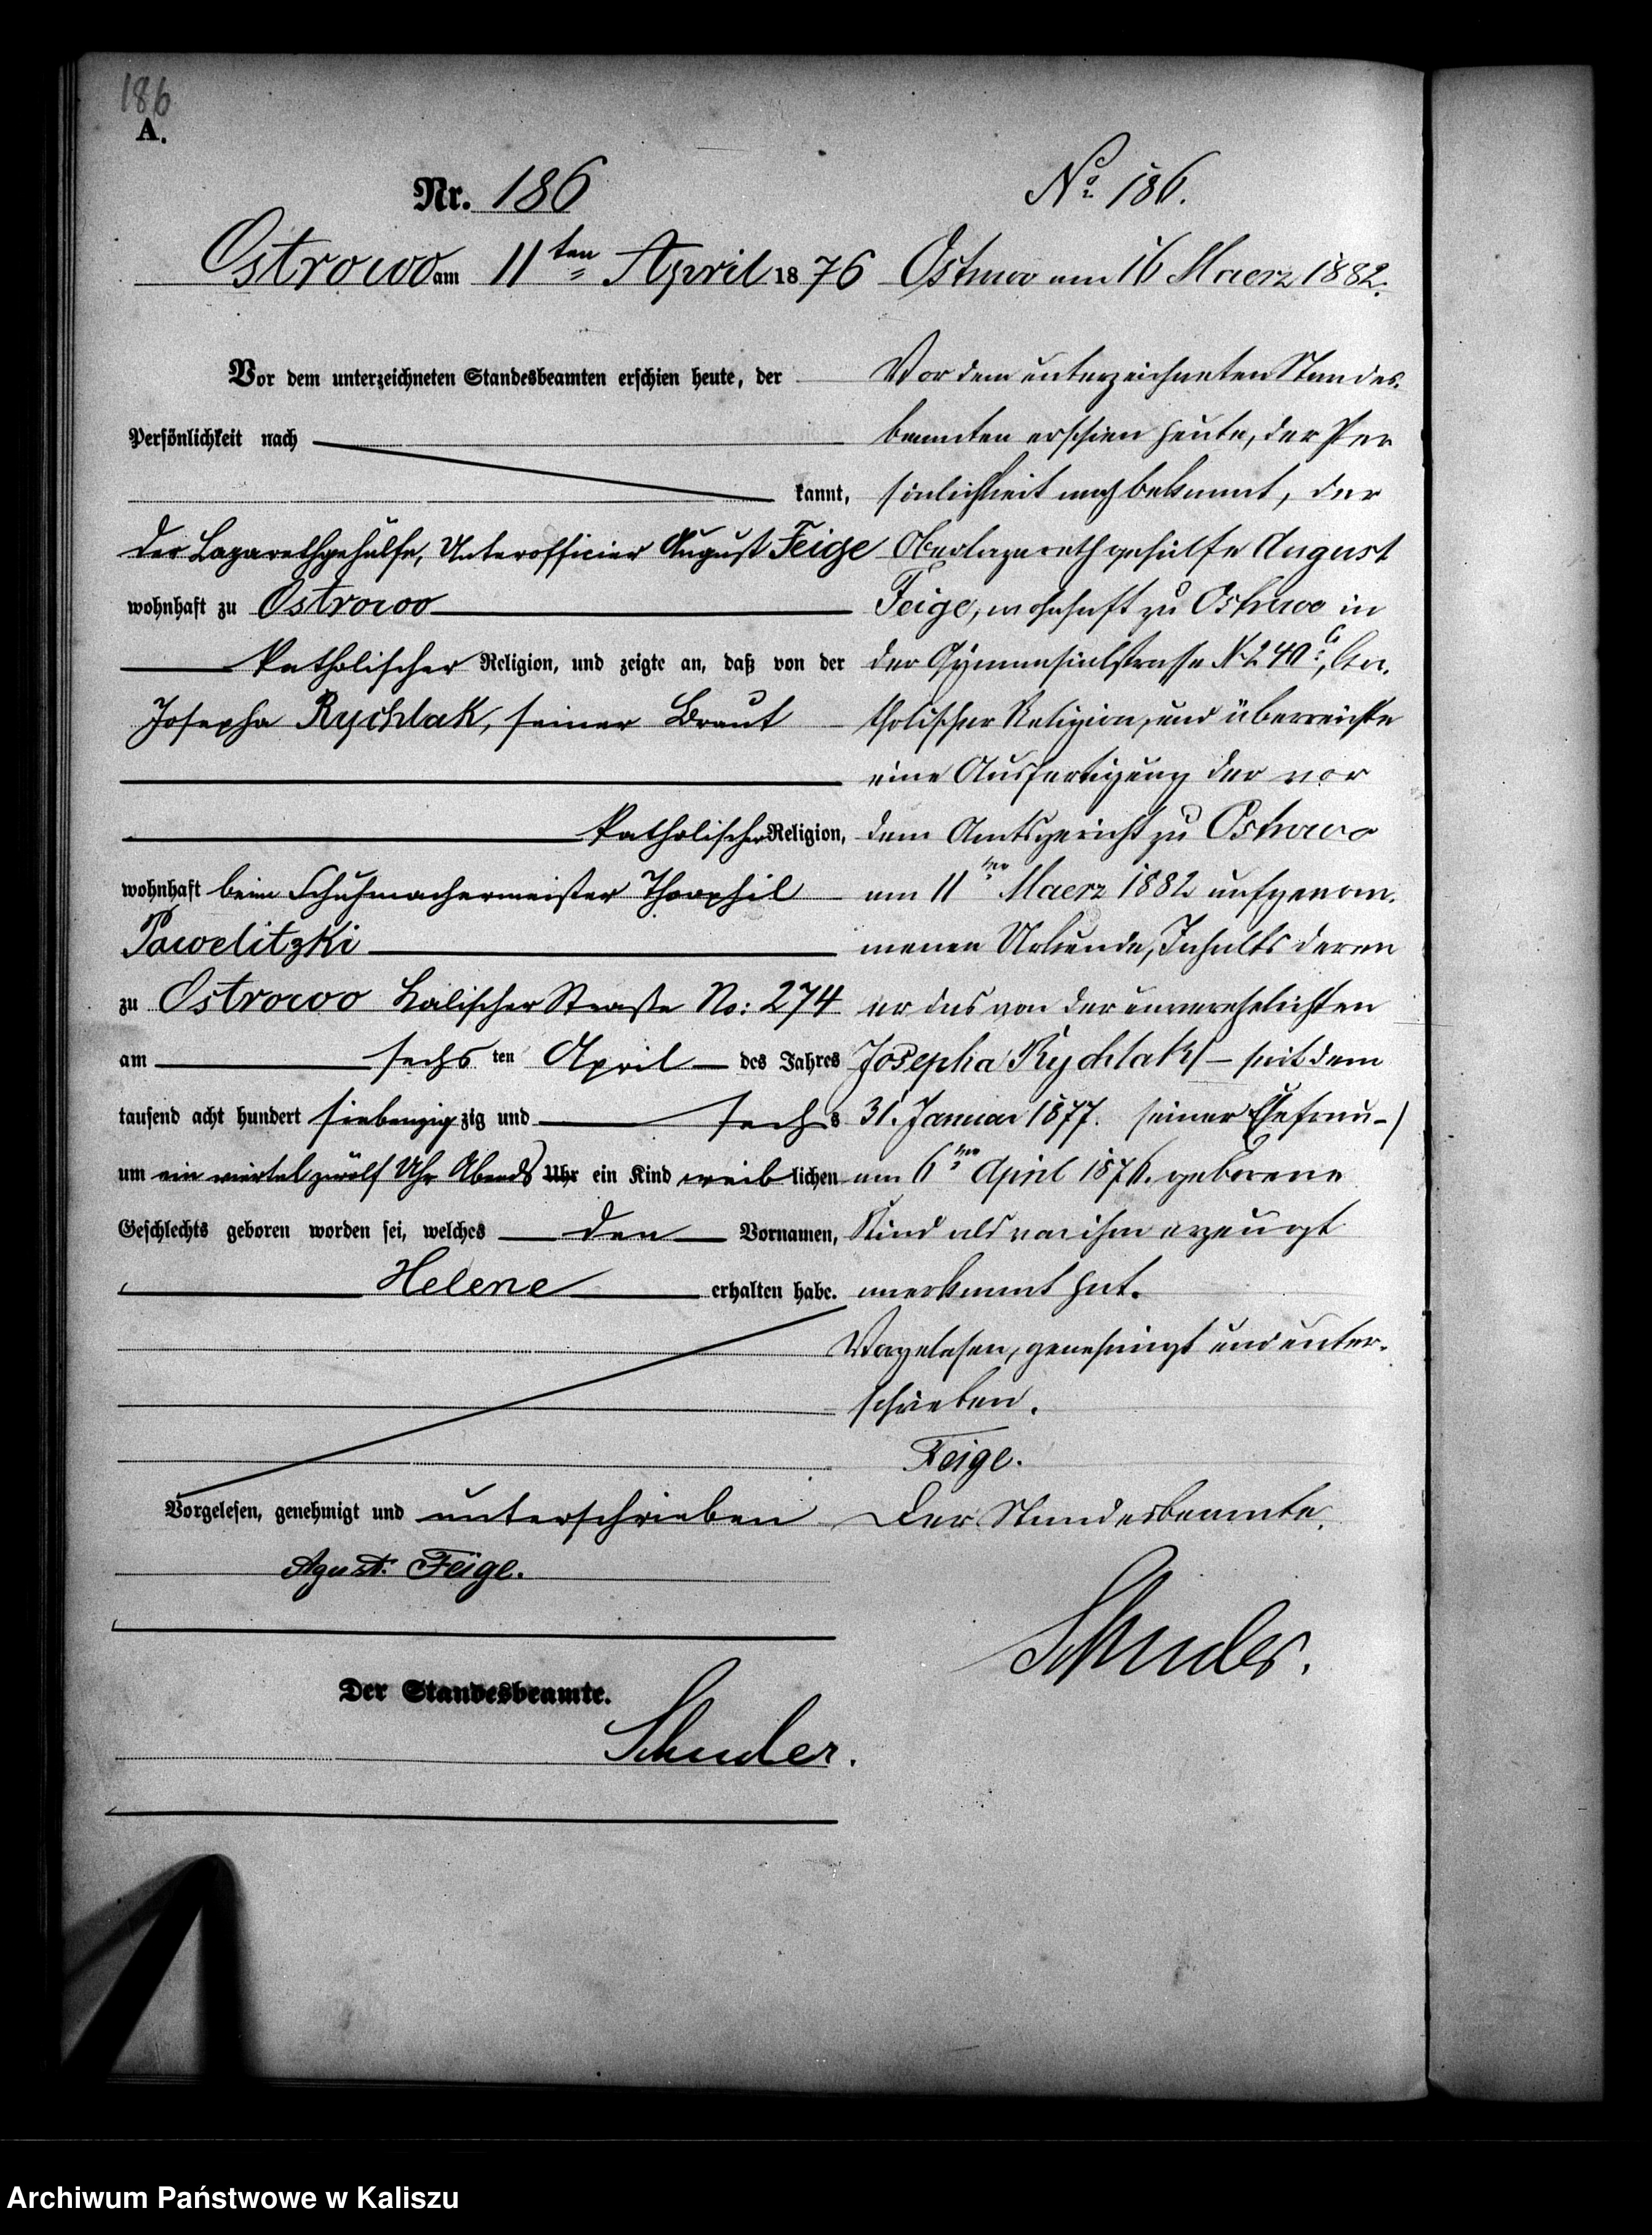 186
A.
Nr. 186
Ostrowo am 11ten April 1876
Vor dem unterzeichneten Standesbeamten erschien heute, der
Persönlichkeit nach
kannt,
der Lazarethgehülfe, Unterofficier August Feige
wohnhaft zu Ostrowo
katholischer Religion, und zeigte an, daß von der
Josepha Rychlak, seiner Braut
katholischer Religion,
wohnhaft beim Schuhmachermeister Theophil
Pawelitzki
zu Ostrowo Kalischer Straße No: 274
am sechs ten April des Jahres
tausend acht hundert siebenzig zig und sechs
um ein viertel zwölf Uhr Abends Uhr ein Kind weiblichen
Geschlechts geboren worden sei, welches den Vornamen,
Helene erhalten habe.
Vorgelesen, genehmigt und unterschrieben
Agust: Feige.
Der Standesbeamte.
Schuder.
No 186.
Ostrowo am 16 Maerz 1882.
Vor dem unterzeichneten Standes-
beamten erschien heute, der Per
sönlichkeit nach bekannt, der
Oberlazarethgehülfe August
Feige, wohnhaft zu Ostrowo in
der Gymnasialstrasse No 240, ka-
tholischer Religion, und überreichte
eine Ausfertigung der vor
dem Amtsgericht zu Ostrowo
am 11ten Maerz 1882 aufgenom-
menen Urkunde, Inhalts deren
er das von der unverehelichten
Josepha Rychlak /– seit dem
31. Januar 1877. seiner Ehefrau –/
am 6ten April 1876. geborene
Kind als von ihm erzeugt
anerkannt hat.
Vorgelesen, genehmigt und unter-
schrieben.
Feige.
Der Standesbeamte.
Schuder.
Archiwum Państwowe w Kaliszu